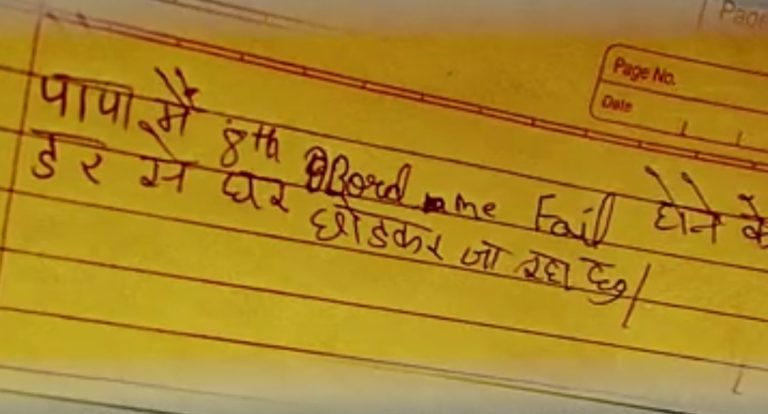 Page
Page No.
Date
पापा मैं 8th Bord me Fail होने के
डर से घर छोडकर जा रहा हु।